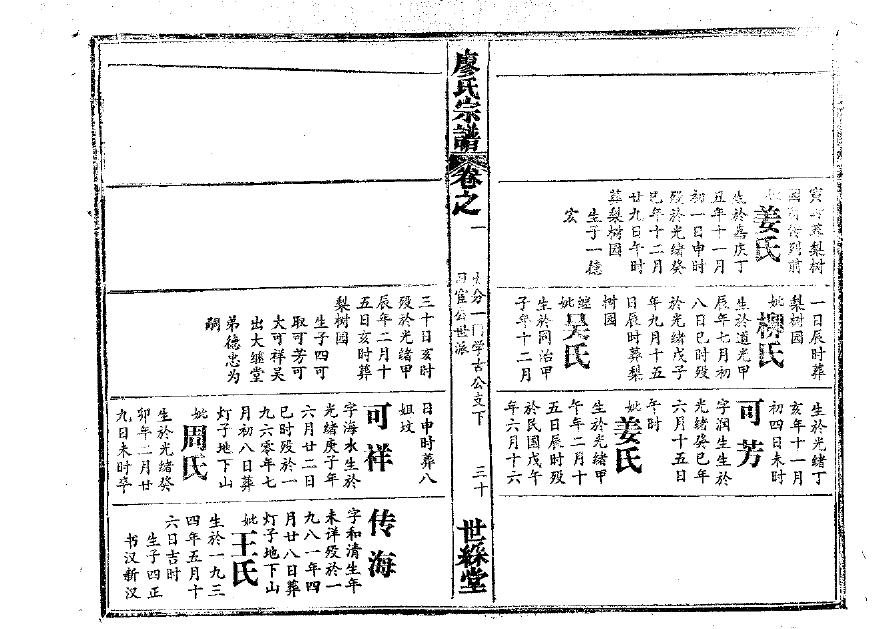 寅时葬梨树
园
妣姜氏
生於嘉庆丁
丑年十一月
初一日申时
殁於光绪癸
巳年十二月
廿九日午时
葬梨树园
生子一德
宏
一日辰时葬
梨树园
妣柳氏
生於道光甲
辰年七月初
八日巳时殁
於光绪戊子
年九月十五
日辰时葬梨
树园
继妣吴氏
生於同治甲
子年十二月
生於光绪丁
亥年十一月
初四日未时
可芳
字润生生於
光绪癸巳年
六月十五日
午时
妣姜氏
生於光绪甲
午年二月十
五日辰时殁
於民国戊午
年六月十六
廖氏宗谱
卷之一
分一门学古公文下
宦公世派
三十
世綵堂
三十日亥时
殁於光绪甲
辰年二月十
五日亥时葬
梨树园
生子四可
取可芳可
大可祥吴
出大继堂
弟德忠为
嗣
日申时葬八
姐坟
可祥
字海水生於
光绪庚子年
六月廿二日
巳时殁於一
九六零年七
月初八日葬
灯子地下山
妣周氏
生於光绪癸
卯年二月廿
九日未时卒
传海
字和清生年
未详殁於一
九八一年四
月廿八日葬
灯子地下山
妣王氏
生於一九三
四年五月十
六日吉时
生子四正
书汉新汉